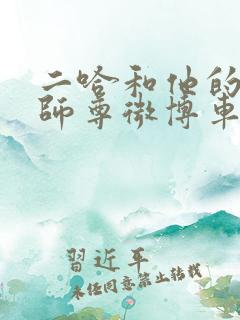 二哈和他的
師尊微博車
習近平
未任同意禁止转载